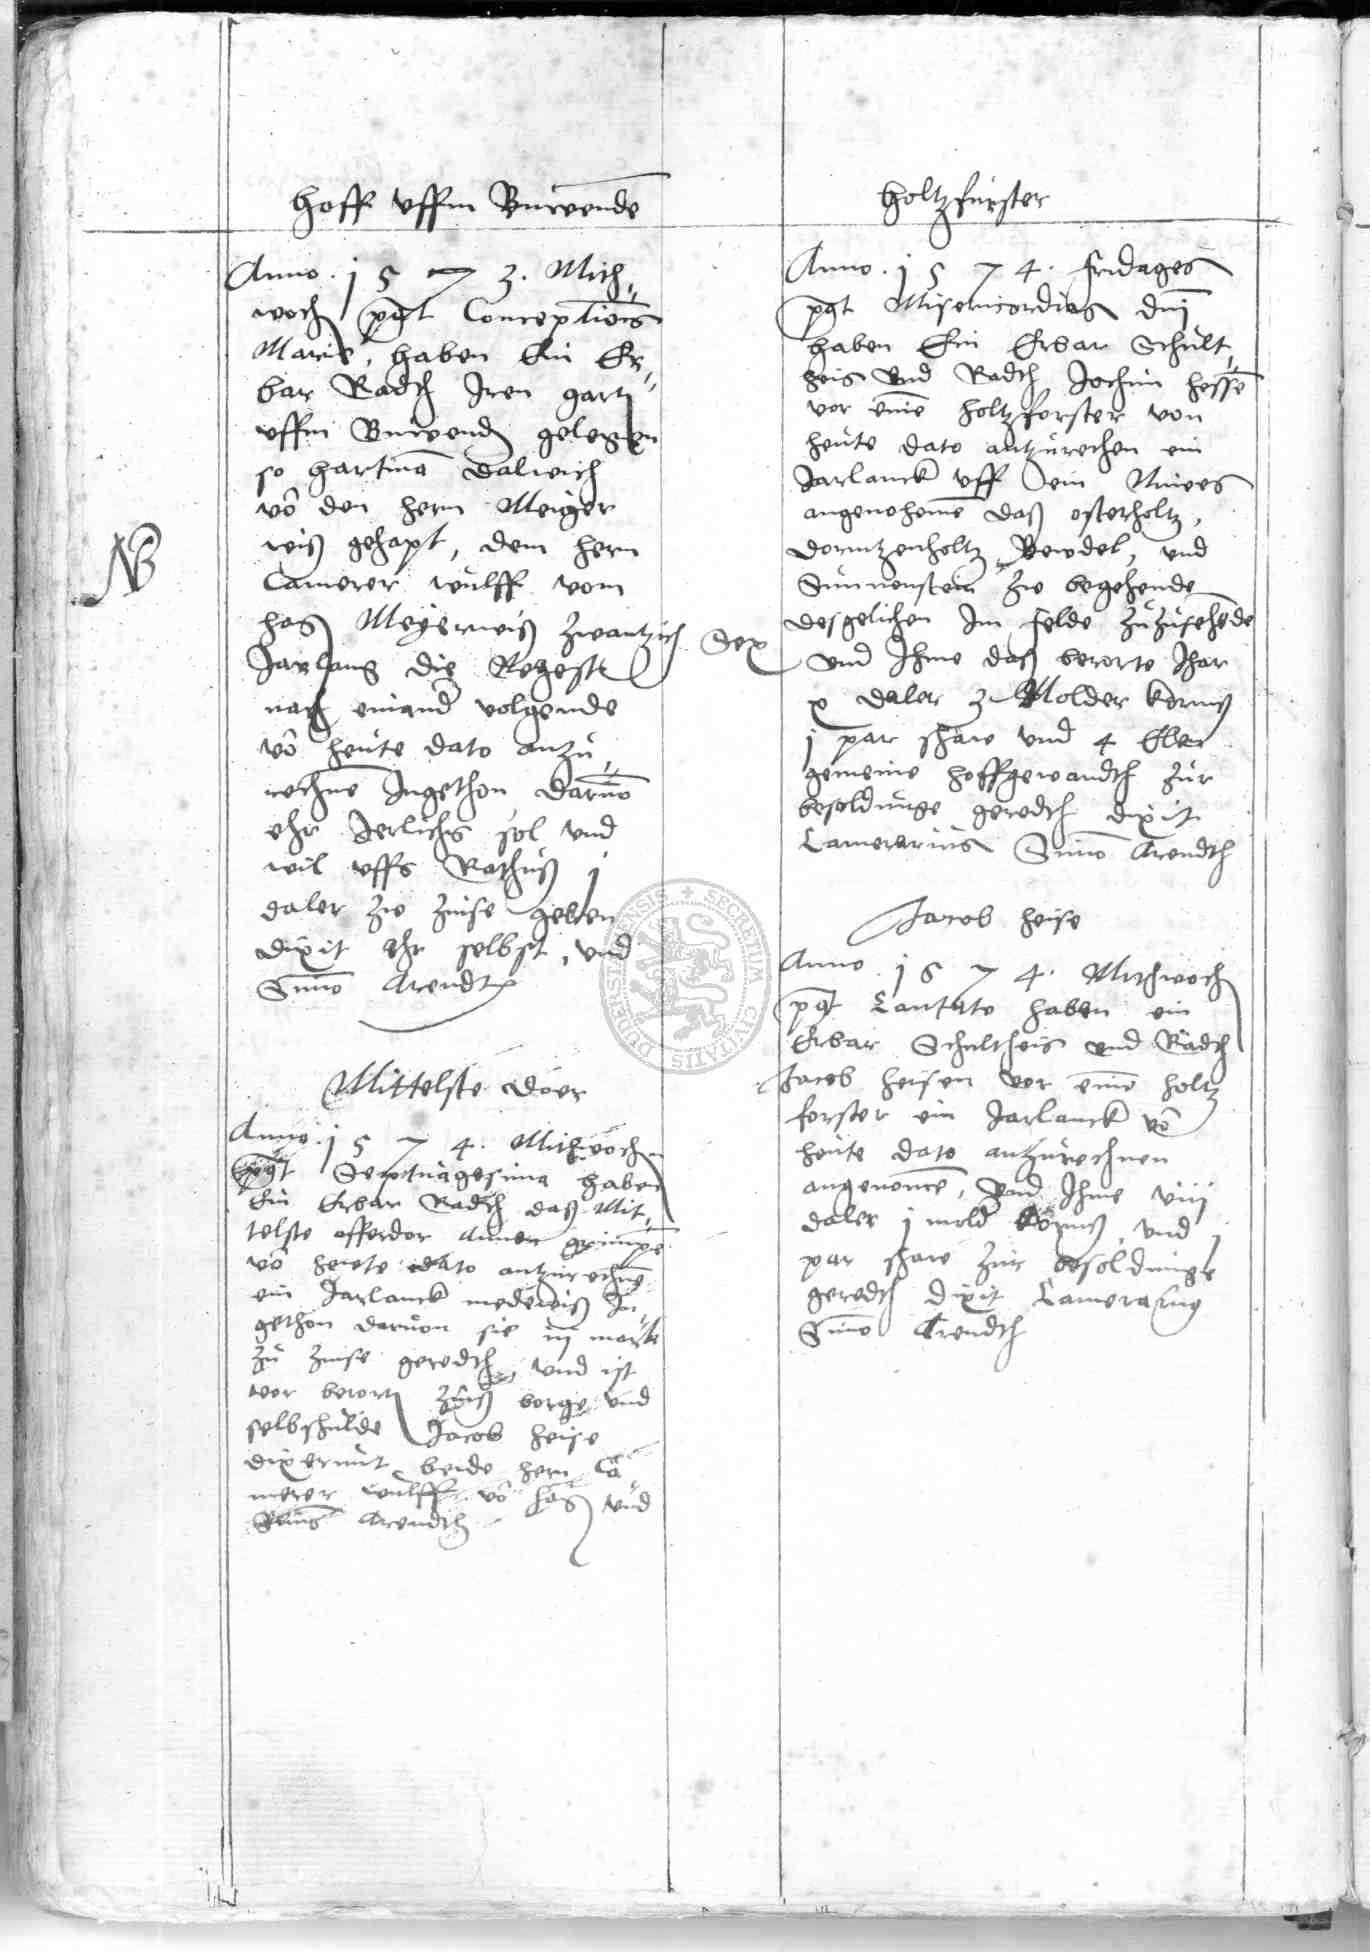 Hoff uffm Burvende
Anno . 1 5 7 3 . Mitt„
woch post Conceptionis
Marie, haben Ein Er„
bar Radth Iren gart
uffm Burvend gelegen
so Hartman
von den hern Meiger
weiß gehapt, dem hern
Camerer Wulff vom
Hag Meyerweiß zwantzich
Jarlang die Negest
nach einander volgende
von heute dato antzu„
rechnen Ingethon Darvon
ehr Jerlichs sol und
wil uffs Rathuß j
daler zw zinse geben
dixit ehr selbst, und
Simon Arendt
NB
Mittelste doer
Anno . 1 5 7 4 . Mitwoch
post Septuagesima haben
Ein Erbar Radth daß Mit„
telste offerdor Annen
von heute dato antzurechnen
ein Jarlanck medeweiß In„
gethon darvon sie iij marck
zu zinse geredth, und ist
vor berort zinß borge und
selbschulde Jacob Heise
dixerunt beide hern Ca„
merer Wulff von Hag und
Simon Arendth
Holtzfurster
Anno . 1 5 7 4 . fridages
post Misericordias dni
haben Ein Erbar Schult„
heis und Radth Jochim Hessen
vor einen Holtzforster von
heute dato antzurechen ein
Jarlanck uff ein Nuwes
angenohemen daß osterholtz,
, und
Sunnenstein zw begehende
desgelichen Im felde zuzusehende
und Ihme daß berorte Jhar
x daler 3 Molder korns
j par schwe und 4 Elen
gemeine hoffgewandth zur
besoldunge geredth dixit
Camerarius Simon Arendth
Jacob Heise
Anno . 1 5 7 4 . Mitwoch
post Cantate haben ein
Erbar Schultheis und Radth
Jacob Heisen vor einen holtz
forster ein Jarlanck von
heute dato antzurechnen
angenomen, und Ihme viij
daler j mold korns und j
par schwe zur besoldunge
geredth dixit Camerarius
Simon Arendth
SECRETUM CIVITATIS DUDERSTADENSIS